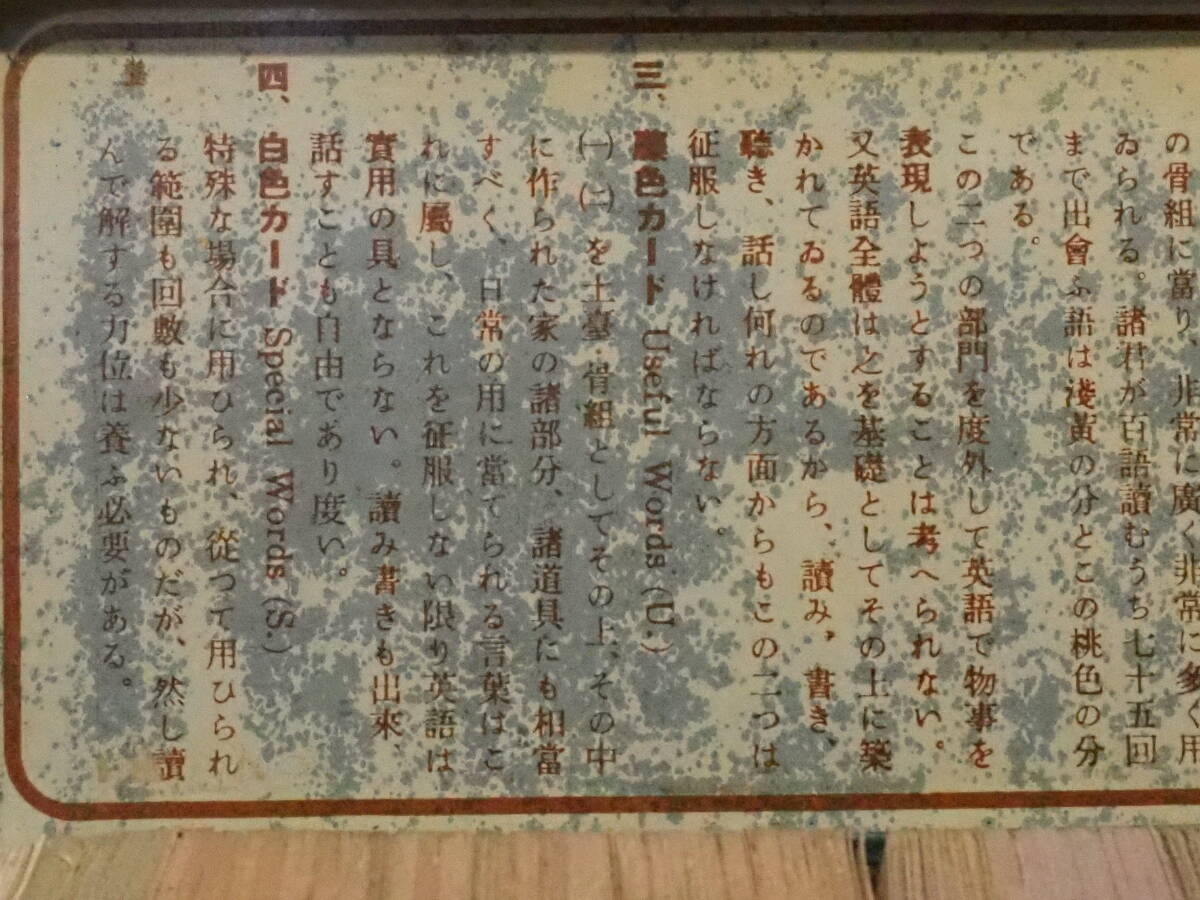 の骨組に當り、非常に廣く非常に多く用
ゐられる。諸君が百語讀むうち七十五回
まで出會ふ語は淺黃の分とこの桃色の分
である。
この二つの部門を度外して英語で物事を
表現しようとすることは考へられない。
又英語全體は之を基礎としてその上に築
かれてゐるのであるから、讀み、書き、
聴き、話し何れの方面からもこの二つは
征服しなければならない。
三、藤色カード Useful Words (U.)
㈠㈡を土臺・骨組としてその上、その中
に作られた家の諸部分、諸道具にも相當
すべく、日常の用に當てられる言葉はこ
れに屬し、これを征服しない限り英語は
實用の具とならない。讀み書きも出來、
話すことも自由であり度い。
四、白色カード Special Words (S.)
特殊な場合に用ひられ、從つて用ひられ
る範圍も回數も少ないものだが、然し讀
んで解する力位は養ふ必要がある。